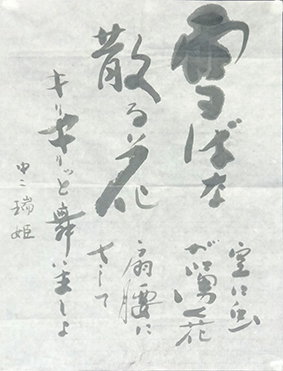 雪ばな
散る花
空に虫
が湧く花
扇腰に
さして
キリキリッと舞いましょ
中二 瑞姫